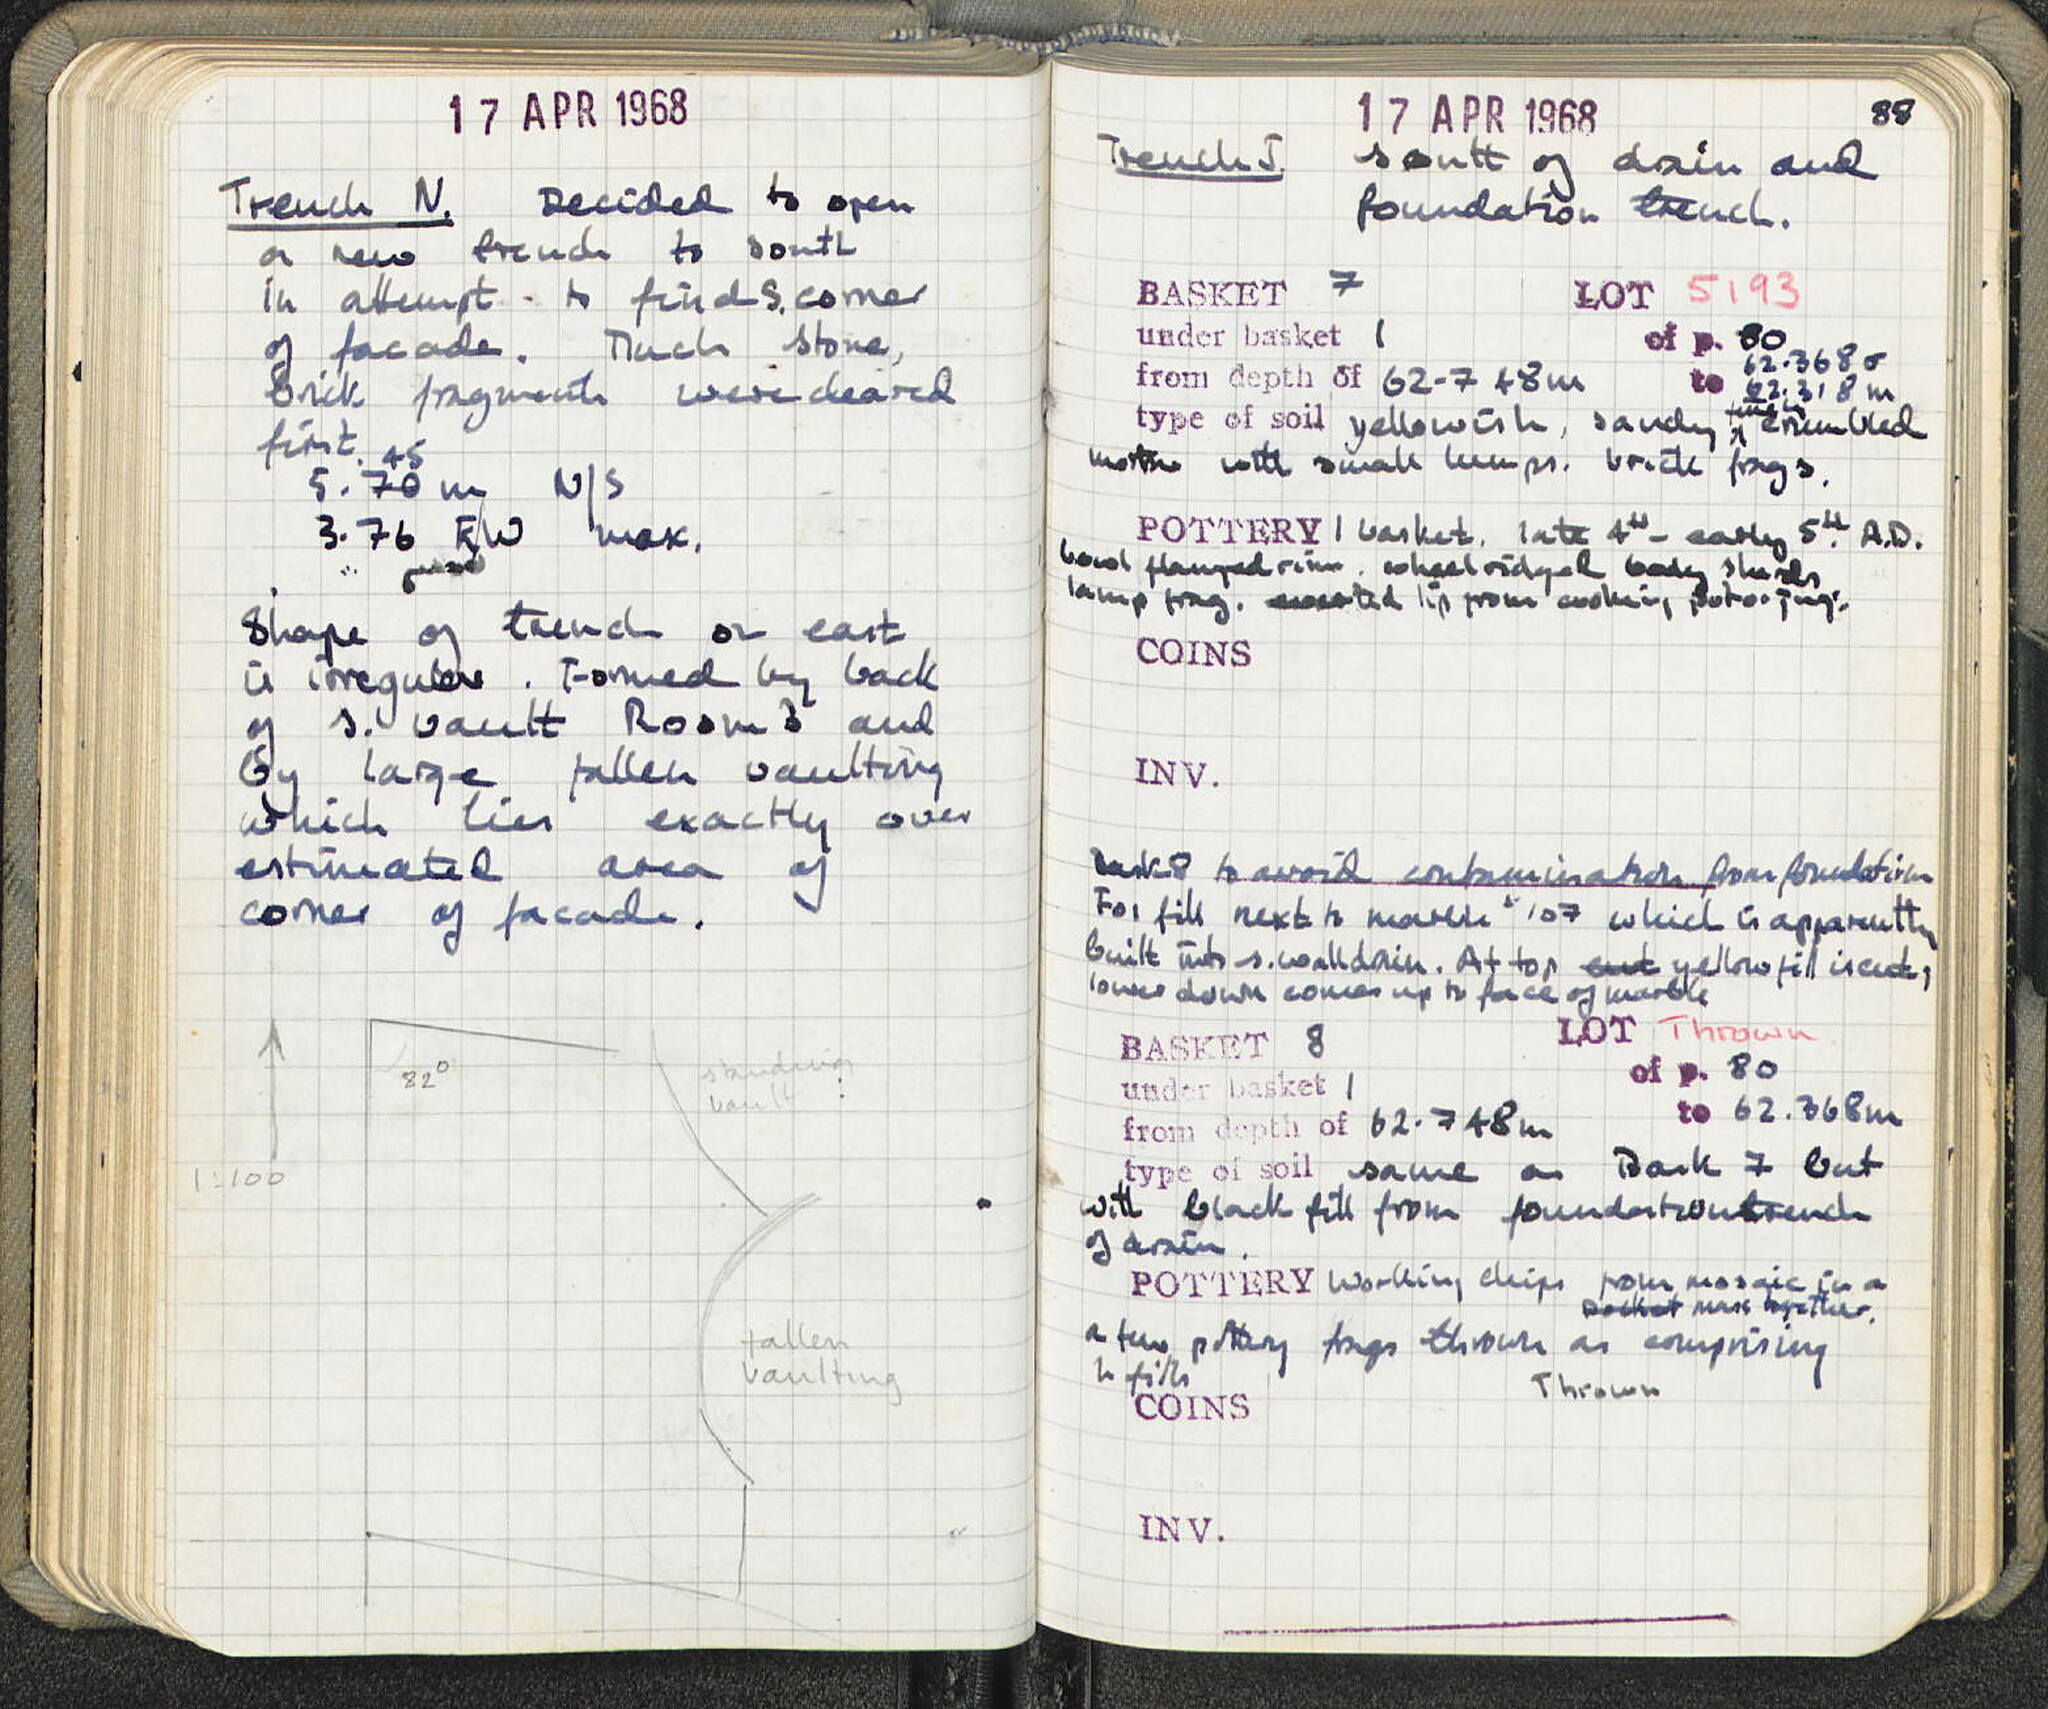 17 APR 1968
Trench N. Decided to open
a new trench to south
in attempt to find S. corner
of facade. Much stone,
brick fragments were cleared
first.
45
5.70 m N/S
3.76 E/W max.
Shape of trench on east
is irregular. Formed by back
of S. vault Room 3 and
by large fallen vaulting
which lies exactly over
estimated area of
corner of facade.
82°
standing
vault
1:100
fallen
vaulting
17 APR 1968
88
Trench J. south of drain and
foundation trench.
BASKET 7 LOT 5193
under basket 1 of p. 80
62.368
from depth of 62.748m to 62.318m
type of soil yellowish, sandy crumbled
mortar with small lumps. brick frags.
POTTERY 1 basket. late 4th - early 5th A.D.
bowl flanged rim. wheelridged body sherds
lamp frag. everted lip from cooking pot or jug.
COINS
INV.
Bask 8 to avoid contamination from foundation
For fill next to marble 107 which is apparently
built into s. wall drain. At top cut yellow fill is cut,
lower down comes up to face of marble
BASKET 8 LOT Thrown
under basket 1 of p. 80
from depth of 62.748m to 62.368m
type of soil same as Bask 7 but
with black fill from foundation trench
of drain.
POTTERY Working chips from mosaic in a
pocket mass together.
a few pottery frags thrown as comprising
2 fills
Thrown
COINS
INV.